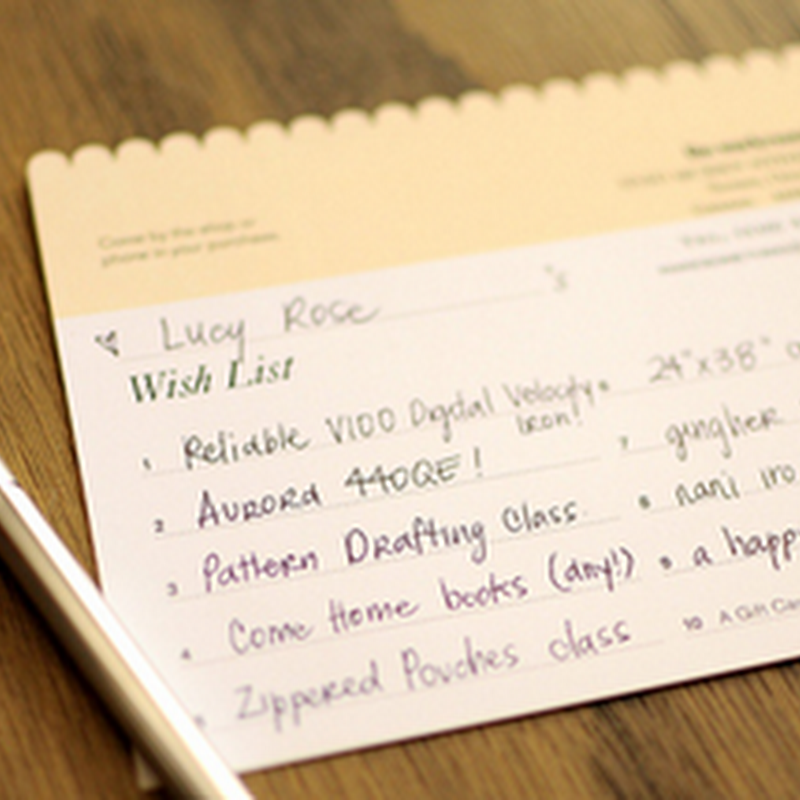 Come by the shop or
phone in your purchase.
Lucy Rose 's
Wish List
1 Reliable V100 Digital Velocity Iron!
2 Aurora 440QE!
3 Pattern Drafting Class
4 Come Home books (any!)
5 Zippered Pouches class
24"x38"
7 gingher
8 nani iro
9 a happ
10 A Gift Car